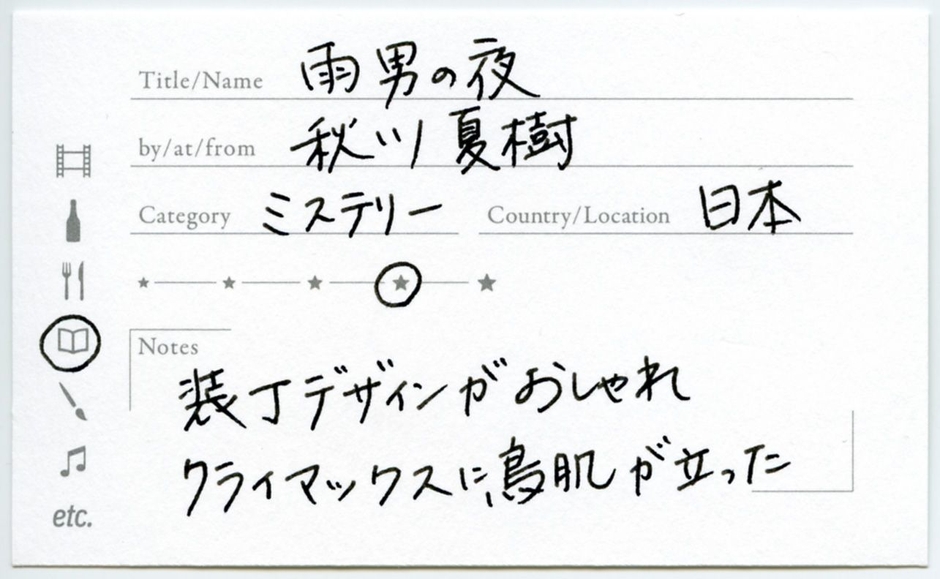 Title/Name 雨男の夜
by/at/from 秋川 夏樹
Category ミステリー Country/Location 日本
Notes
装丁デザインがおしゃれ
クライマックスに、鳥肌が立った
etc.